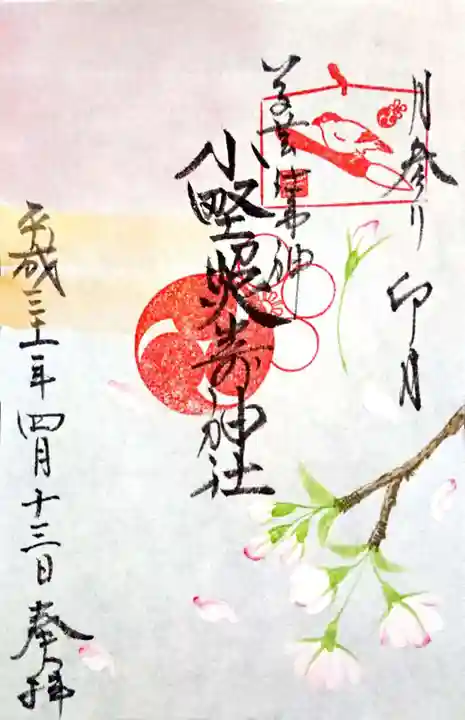 月参り 卯月
学芸の神
小野照崎神社
平成三十一年四月十三日 奉拝